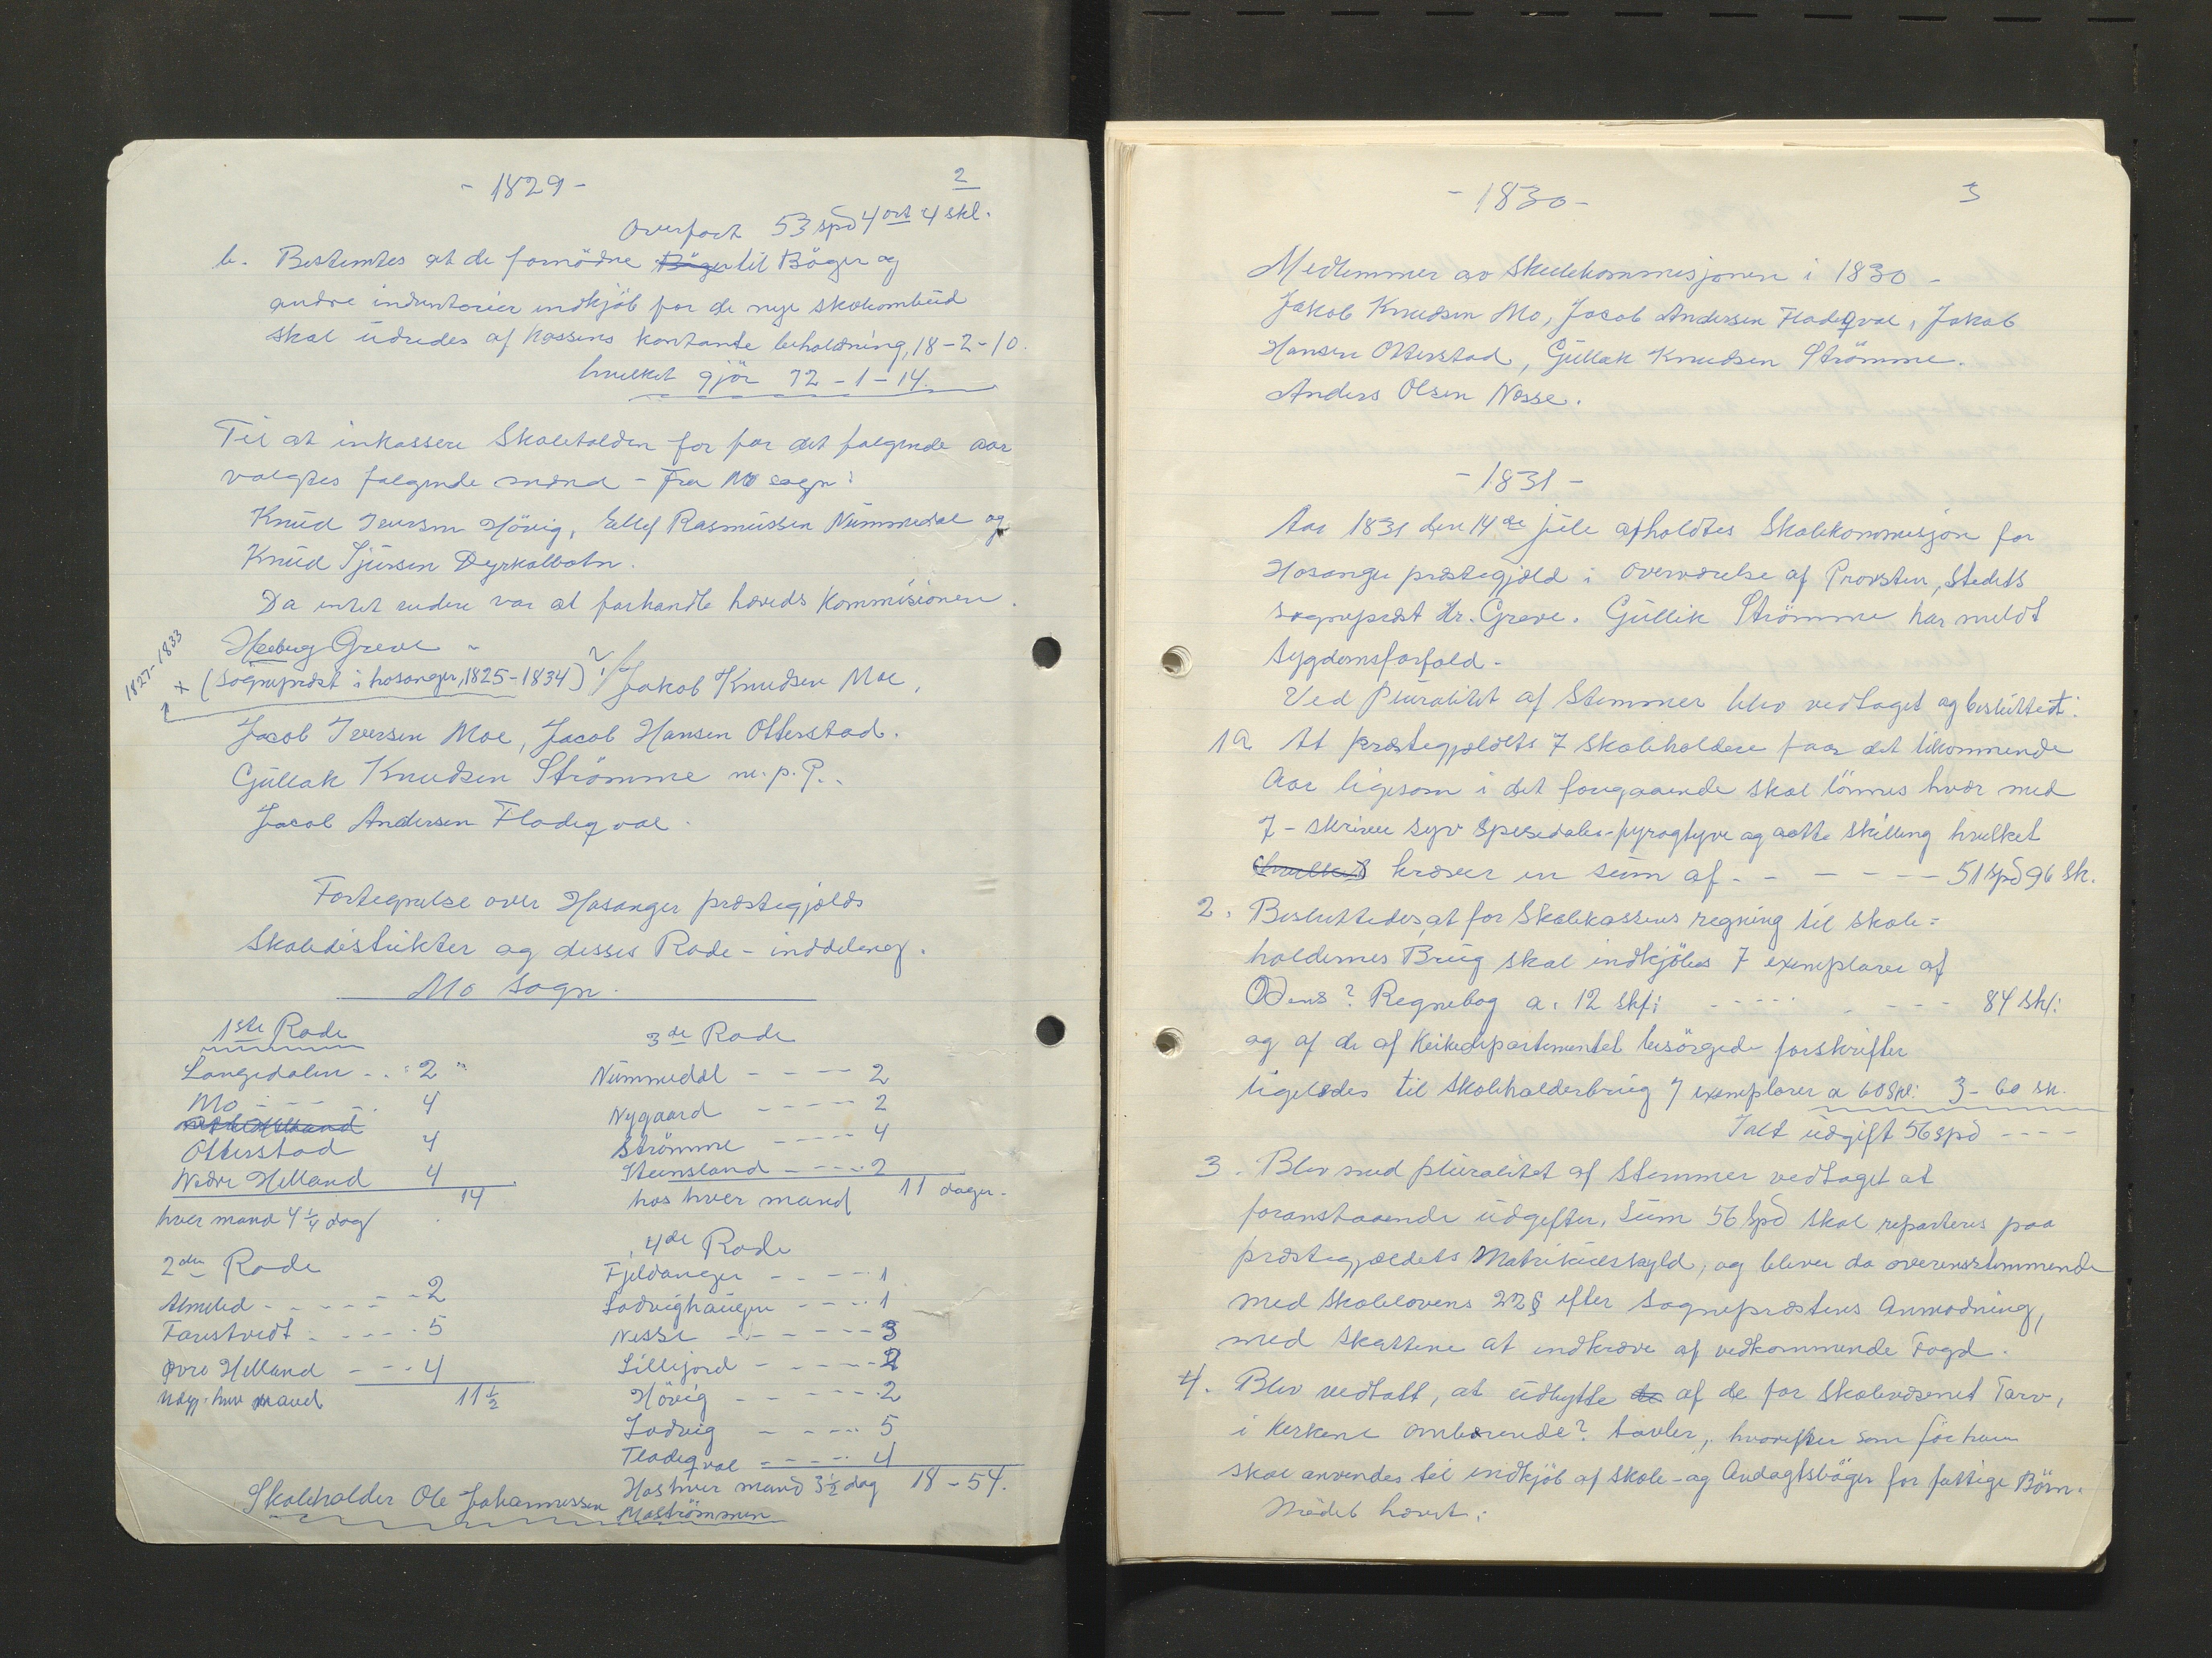 - 1829 -
2
Overført 53 spd 4 ort 4 skl.
b. Bestemtes at de fornödne Böger til Böger og
andre indventarier indkjöb for de nye skoleombud
skal udredes af Kassens kontante beholdning, 18-2-10.
hvilket gjör 72-1-14.
Til at inkassere Skoletolden for for det følgende aar
valgtes følgende mænd - Fra Mo sogn:
Knud Iversen Hövig, Ellef Rasmussen Nummedal og
Knud Sjursen Dyrkolbotn.
Da intet videre var at forhandle hæveds Kommisionen.
Greve -
1827-1833
x (Sogneprest i hosanger, 1825-1834) ?! Jakob Knudsen Moe,
Jacob Iversen Moe, Jacob Hansen Otterstad.
Gullak Knudsen Strömme m.p.P..
Jacob Andersen Fladeqval.
Fortegnelse over Hosanger præstegjælds
Skoledistrikter og disses Rode - inddeling.
Mo sogn.
1ste Rode
Langedalen - - 2
Mo - - - - 4
Otterstad 4
Nedre Helland 4
14
hver mand 4 1/4 dag
2den Rode
Almelid - - - - - 2
Farestvedt - - - - 5
Øvre Helland - - - 4
hver mand 11 1/2
3de Rode
Nummedal - - - - 2
Nygaard - - - - - 2
Strömme - - - - 4
Steinsland - - - - 2
hos hver mand 11 dager.
4de Rode
Fjeldanger - - - - 1
Ladvighaugen - - - - 1
Nesse - - - - - - 3
Lillejord - - - - - 2
Hövig - - - - - 2
Ladvig - - - - - 5
Fladeqval - - - - - 4
Hos hver mand 3 1/2 dag 18 - 54.
Skoleholder Ole Johannessen
Moströmmen
- 1830 -
3
Medlemmer av Skulekommisjonen i 1830 -
Jakob Knudsen Mo, Jacob Andersen Fladeqval, Jakob
Hansen Otterstad, Gullak Knudsen Strömme.
Anders Olsen Nesse.
- 1831 -
Aar 1831 den 14de juli afholdtes Skolekommisjon for
Hosanger præstegjæld i overværelse af Provsten, Stedets
sogneprest Hr. Greve. Gullik Strömme har meldt
sygdomsforfald -
Ved Pluralitet af Stemmer blev vedtaget og besluttedt:
1a At præstegjældets 7 skoleholdere faar det tilkommende
Aar ligesom i det foregaaende skal lönnes hver med
7 - skriver syv Spesidaler - fyrogtyve og aatte skilling hvilket
hvilket kræver en sum af - - - - - - 51 spd 96 Sk.
2. Besluttedes, at for Skolekassens regning til skole=
holdernes Brug skal indkjöbes 7 exemplarer af
Odens? Regnebog a. 12 skl: - - - - - - - - 84 Skl:
og af de af Kirkedepartementet besörgede forskrifter
ligeledes til skoleholderbrug 7 exemplarer a 60 Skl: 3 - 60 sk.
Ialt udgift 56 spd - - - -
3. Blev med pluralitet af stemmer vedtaget at
foranstaaende udgifter, Sum 56 Spd skal reparteres paa
præstegjældets Matrikulskyld, og bliver da overensstemmende
med skolelovens 22 § efter sogneprestens Anmodning,
med skattene at indkræve af vedkommende Fogd.
4. Blev vedtatt, at udbytte de af de for Skolevæsenet Tarv,
i Kirkene ombærende? tavler, hvorefter som för
skal anvendes til indkjöb af skole - og Andagtsböger for fattige Börn.
Mödet hævet.